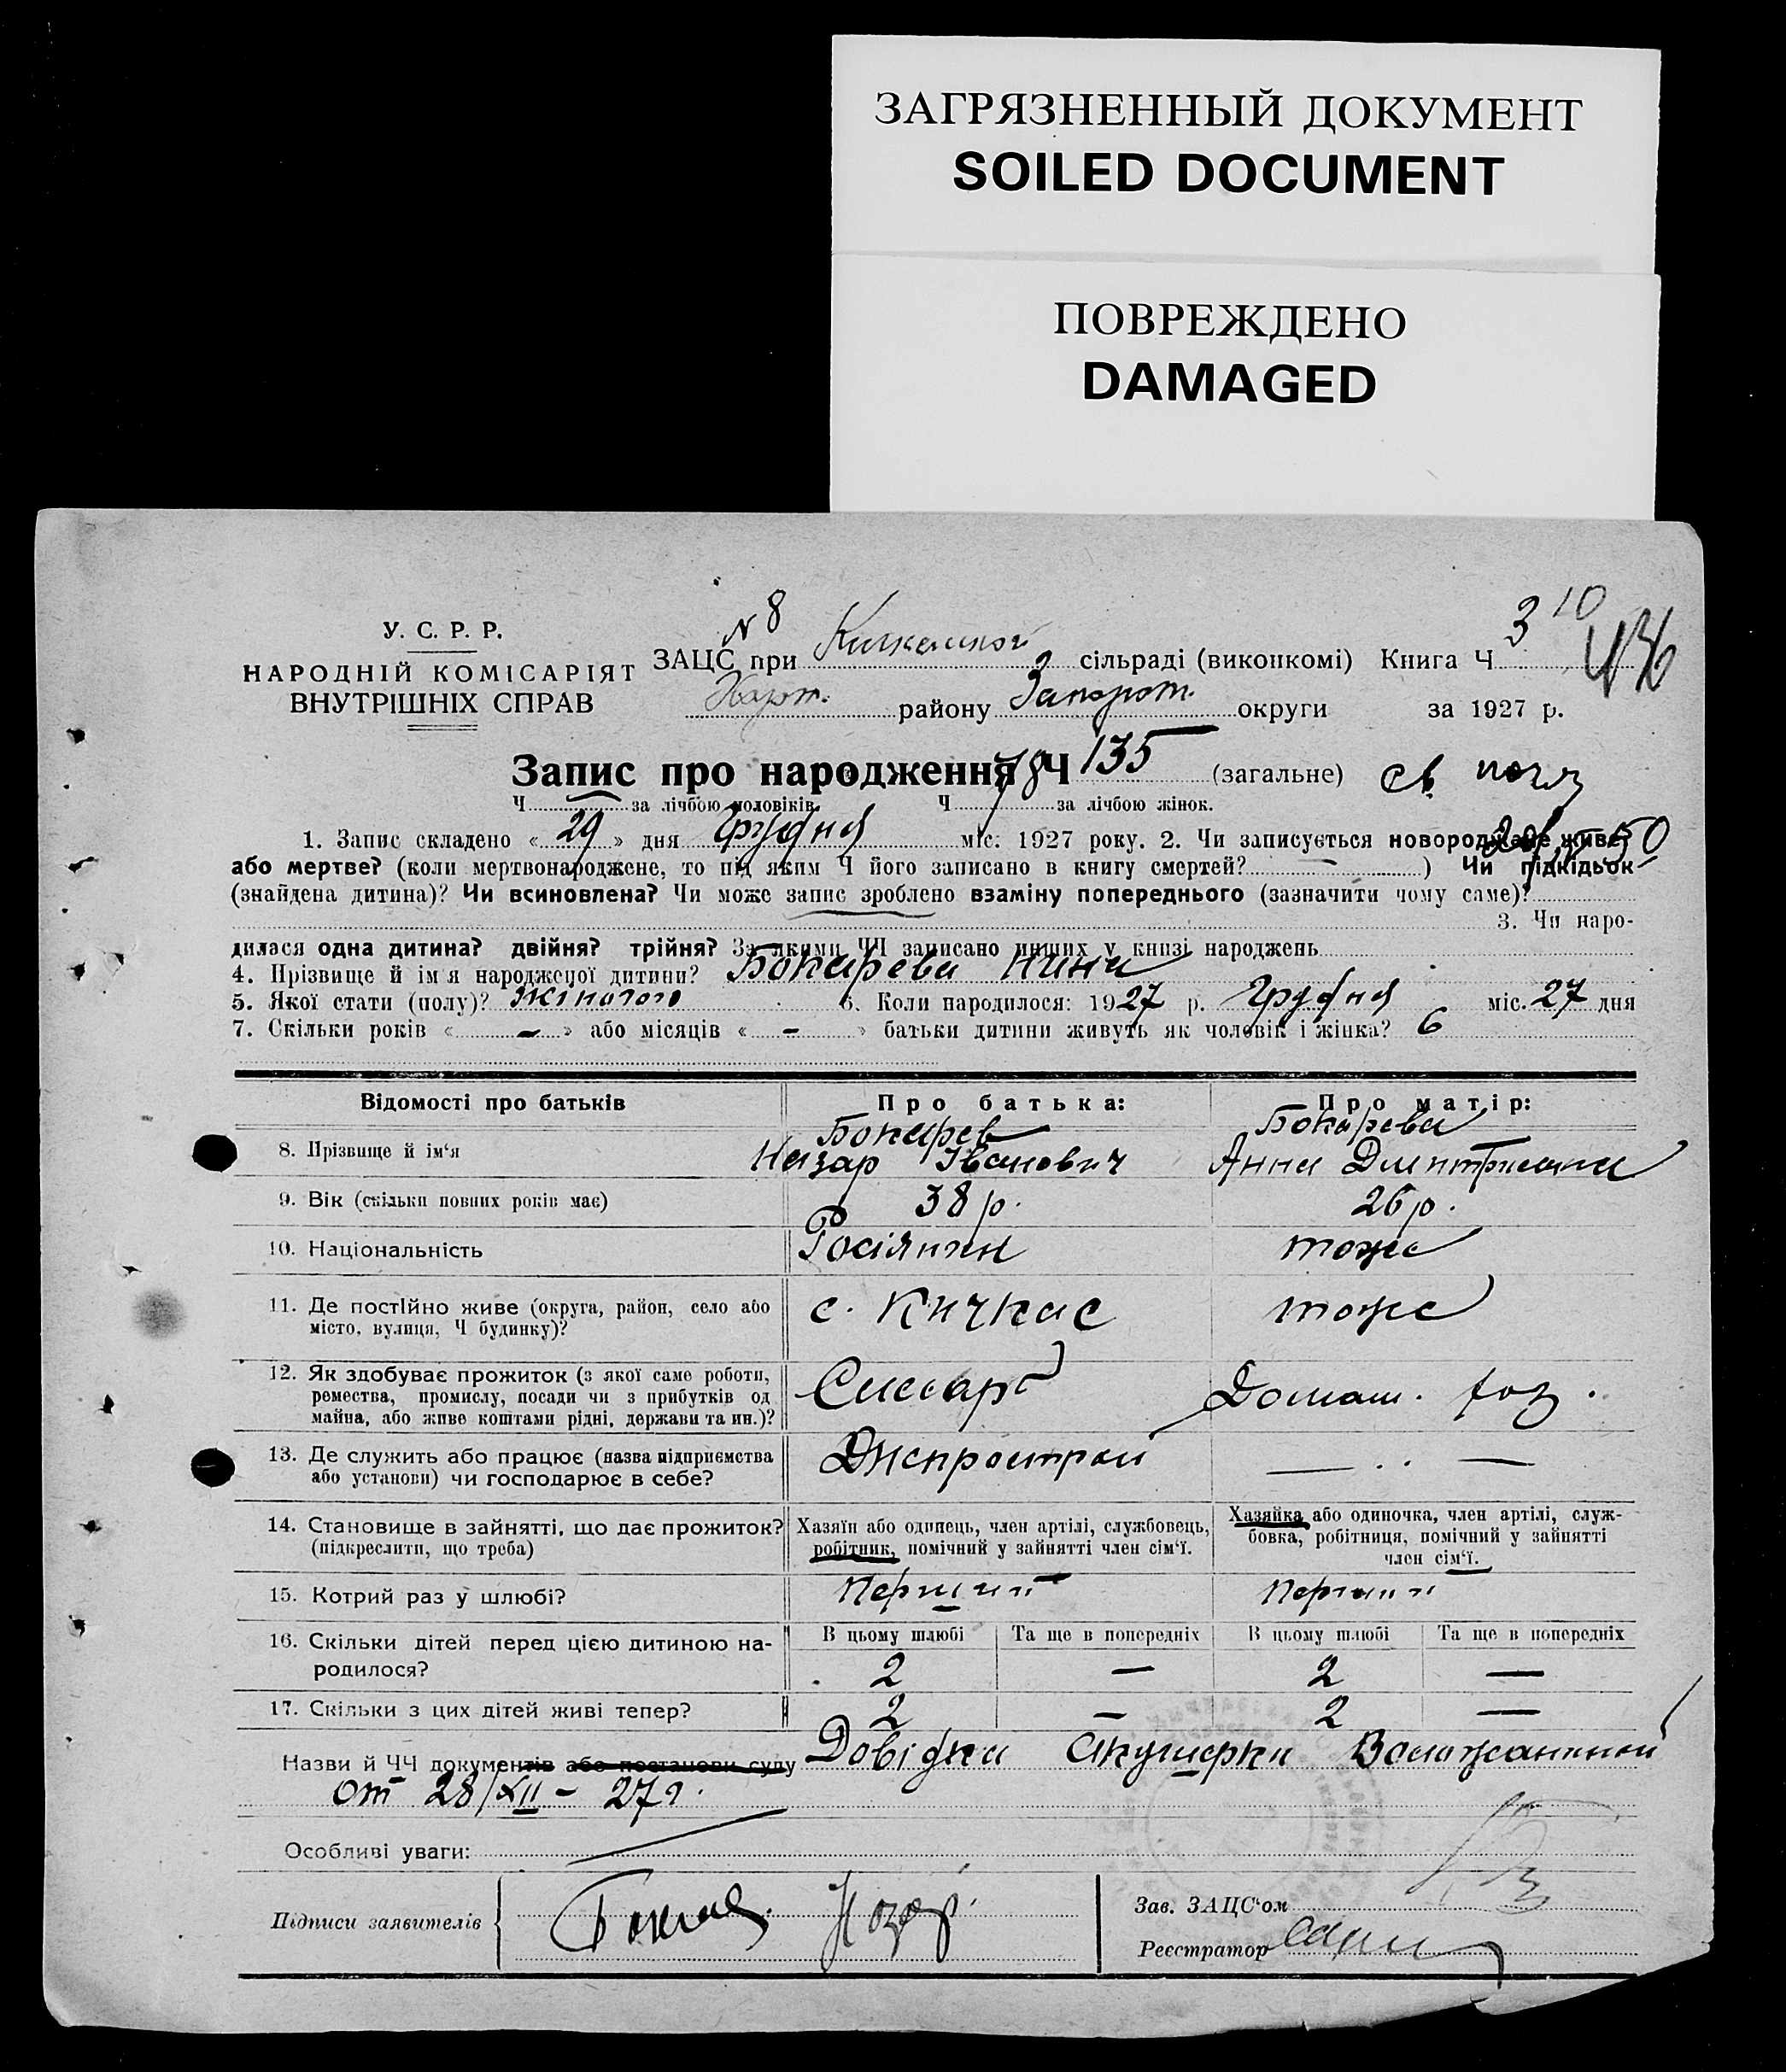 ЗАГРЯЗНЕННЫЙ ДОКУМЕНТ
SOILED DOCUMENT
ПОВРЕЖДЕНО
DAMAGED
У. С. Р. Р.
НАРОДНІЙ КОМІСАРІЯТ
ВНУТРІШНІХ СПРАВ
N 8
3 10
ЗАЦС при сільраді (виконкомі) Книга Ч
району Запорож. округи за 1927 р.
Запис про народження Ч 135 (загальне)
Ч за лічбою чоловіків Ч 78 за лічбою жінок.
1. Запис складено « 29 » дня Грудня міс. 1927 року. 2. Чи записується новороджене живе,
або мертве? (коли мертвонароджене, то під яким Ч його записано в книгу смертей? — ) Чи підкідьок
(знайдена дитина)? Чи всиновлена? Чи може запис зроблено взаміну попереднього (зазначити чому саме)?
3. Чи наро-
дилася одна дитина? двійня? трійня? За якими ЧЧ записано инших у книзі народжень
4. Прізвище й ім'я народженої дитини? Бокарева Нина
5. Якої стати (полу)? жіночого 6. Коли народилося: 1927 р. Грудня міс. 27 дня
7. Скільки років « — » або місяців « — » батьки дитини живуть як чоловік і жінка? 6
Відомості про батьків Про батька: Про матір:
8. Прізвище й ім'я Бокарев Назар Іванович Бокарева Анна
9. Вік (скільки повних років має) 38 р. 26 р.
10. Національність Росіянин тоже
11. Де постійно живе (округа, район, село або
місто, вулиця, Ч будинку)? с. Кичкас тоже
12. Як здобуває прожиток (з якої саме роботи,
ремества, промислу, посади чи з прибутків од
майна, або живе коштами рідні, держави та ин.)? Слесарь Домаш. хоз.
13. Де служить або працює (назва підприємства
або установи) чи господарює в себе? Днепрострой — .. —
14. Становище в зайнятті, що дає прожиток?
(підкреслити, що треба)
Хазяїн або одинець, член артілі, службовець,
робітник, помічний у зайнятті член сім'ї.
Хазяйка або одиночка, член артілі, служ-
бовка, робітниця, помічний у зайнятті
член сім'ї.
15. Котрий раз у шлюбі? Перший Перший
16. Скільки дітей перед цією дитиною на-
родилося?
В цьому шлюбі Та ще в попередніх В цьому шлюбі Та ще в попередніх
2 — 2 —
17. Скільки з цих дітей живі тепер? 2 — 2 —
Назви й ЧЧ документів або постанови суду Довідка Акушерки
от 28/XII – 27 г.
Особливі уваги:
Підписи заявителів Назар
Зав. ЗАЦС'ом
Реєстратор